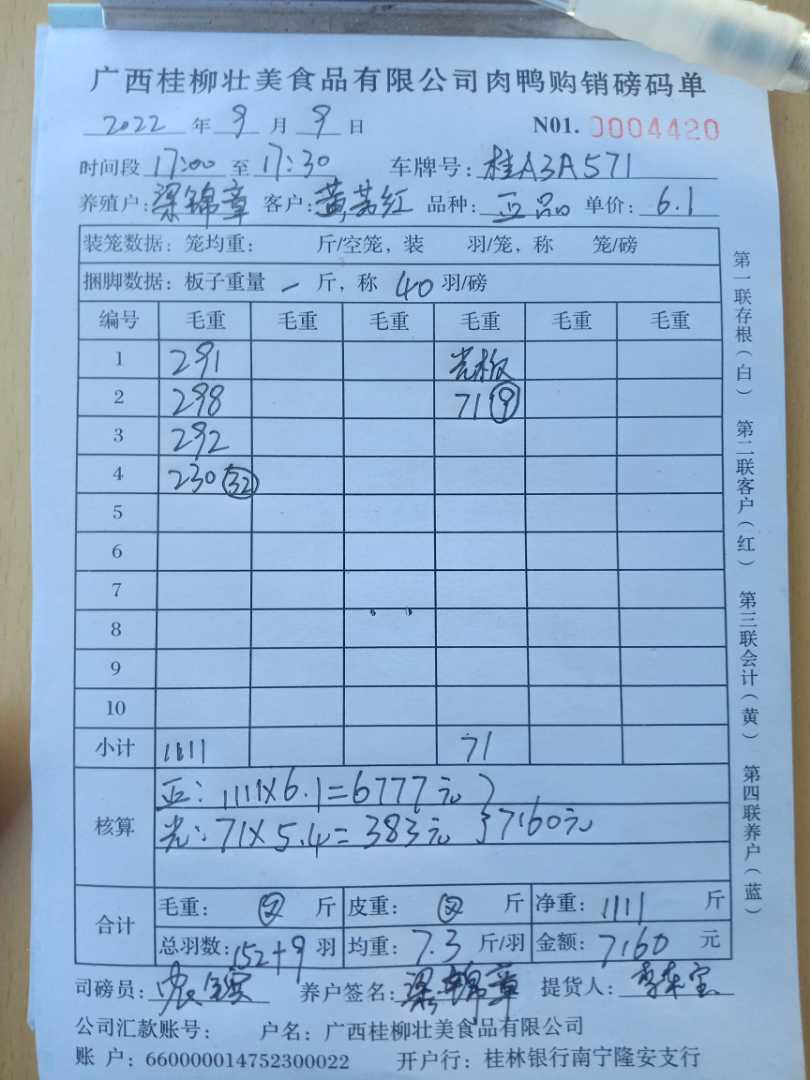 广西桂柳壮美食品有限公司肉鸭购销磅码单
2022 年 9 月 9 日 N01. 0004420
时间段 17:00 至 17:30 车牌号: 桂A3A571
养殖户: 梁锦章 客户: 黄 红 品种: 亚品 单价: 6.1
装笼数据: 笼均重: 斤/空笼, 装 羽/笼, 称 笼/磅
捆脚数据: 板子重量 一 斤, 称 40 羽/磅
编号 毛重 毛重 毛重 毛重 毛重 毛重
1 291 光板
2 298 71 9
3 292
4 230 32
5
6
7
8
9
10
小计 1111 71
核算 亚: 1111×6.1=6777元 }
光: 71×5.4=383元 }7160元
合计 毛重: 斤 皮重: 斤 净重: 1111 斤
总羽数: 152+9 羽 均重: 7.3 斤/羽 金额: 7160 元
司磅员: 养户签名: 梁锦章 提货人:
公司汇款账号: 户名: 广西桂柳壮美食品有限公司
账 户: 660000014752300022 开户行: 桂林银行南宁隆安支行
第一联存根(白) 第二联客户(红) 第三联会计(黄) 第四联养户(蓝)